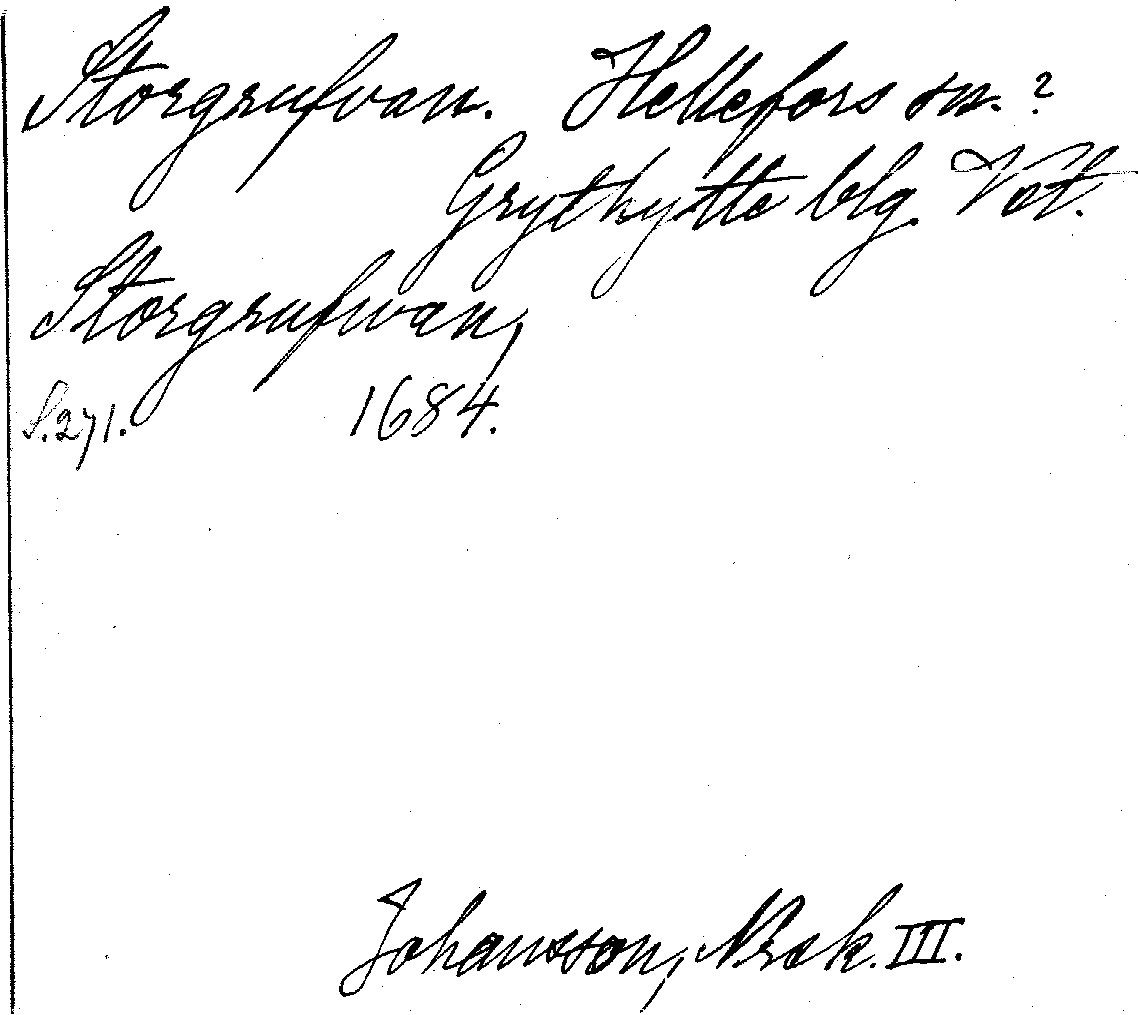 Storgrufvan. Hellefors sn.?
Grythytte blg. Vst.
Storgrufwan,
S. 271. 1684.
Johansson, Nrsk. III.